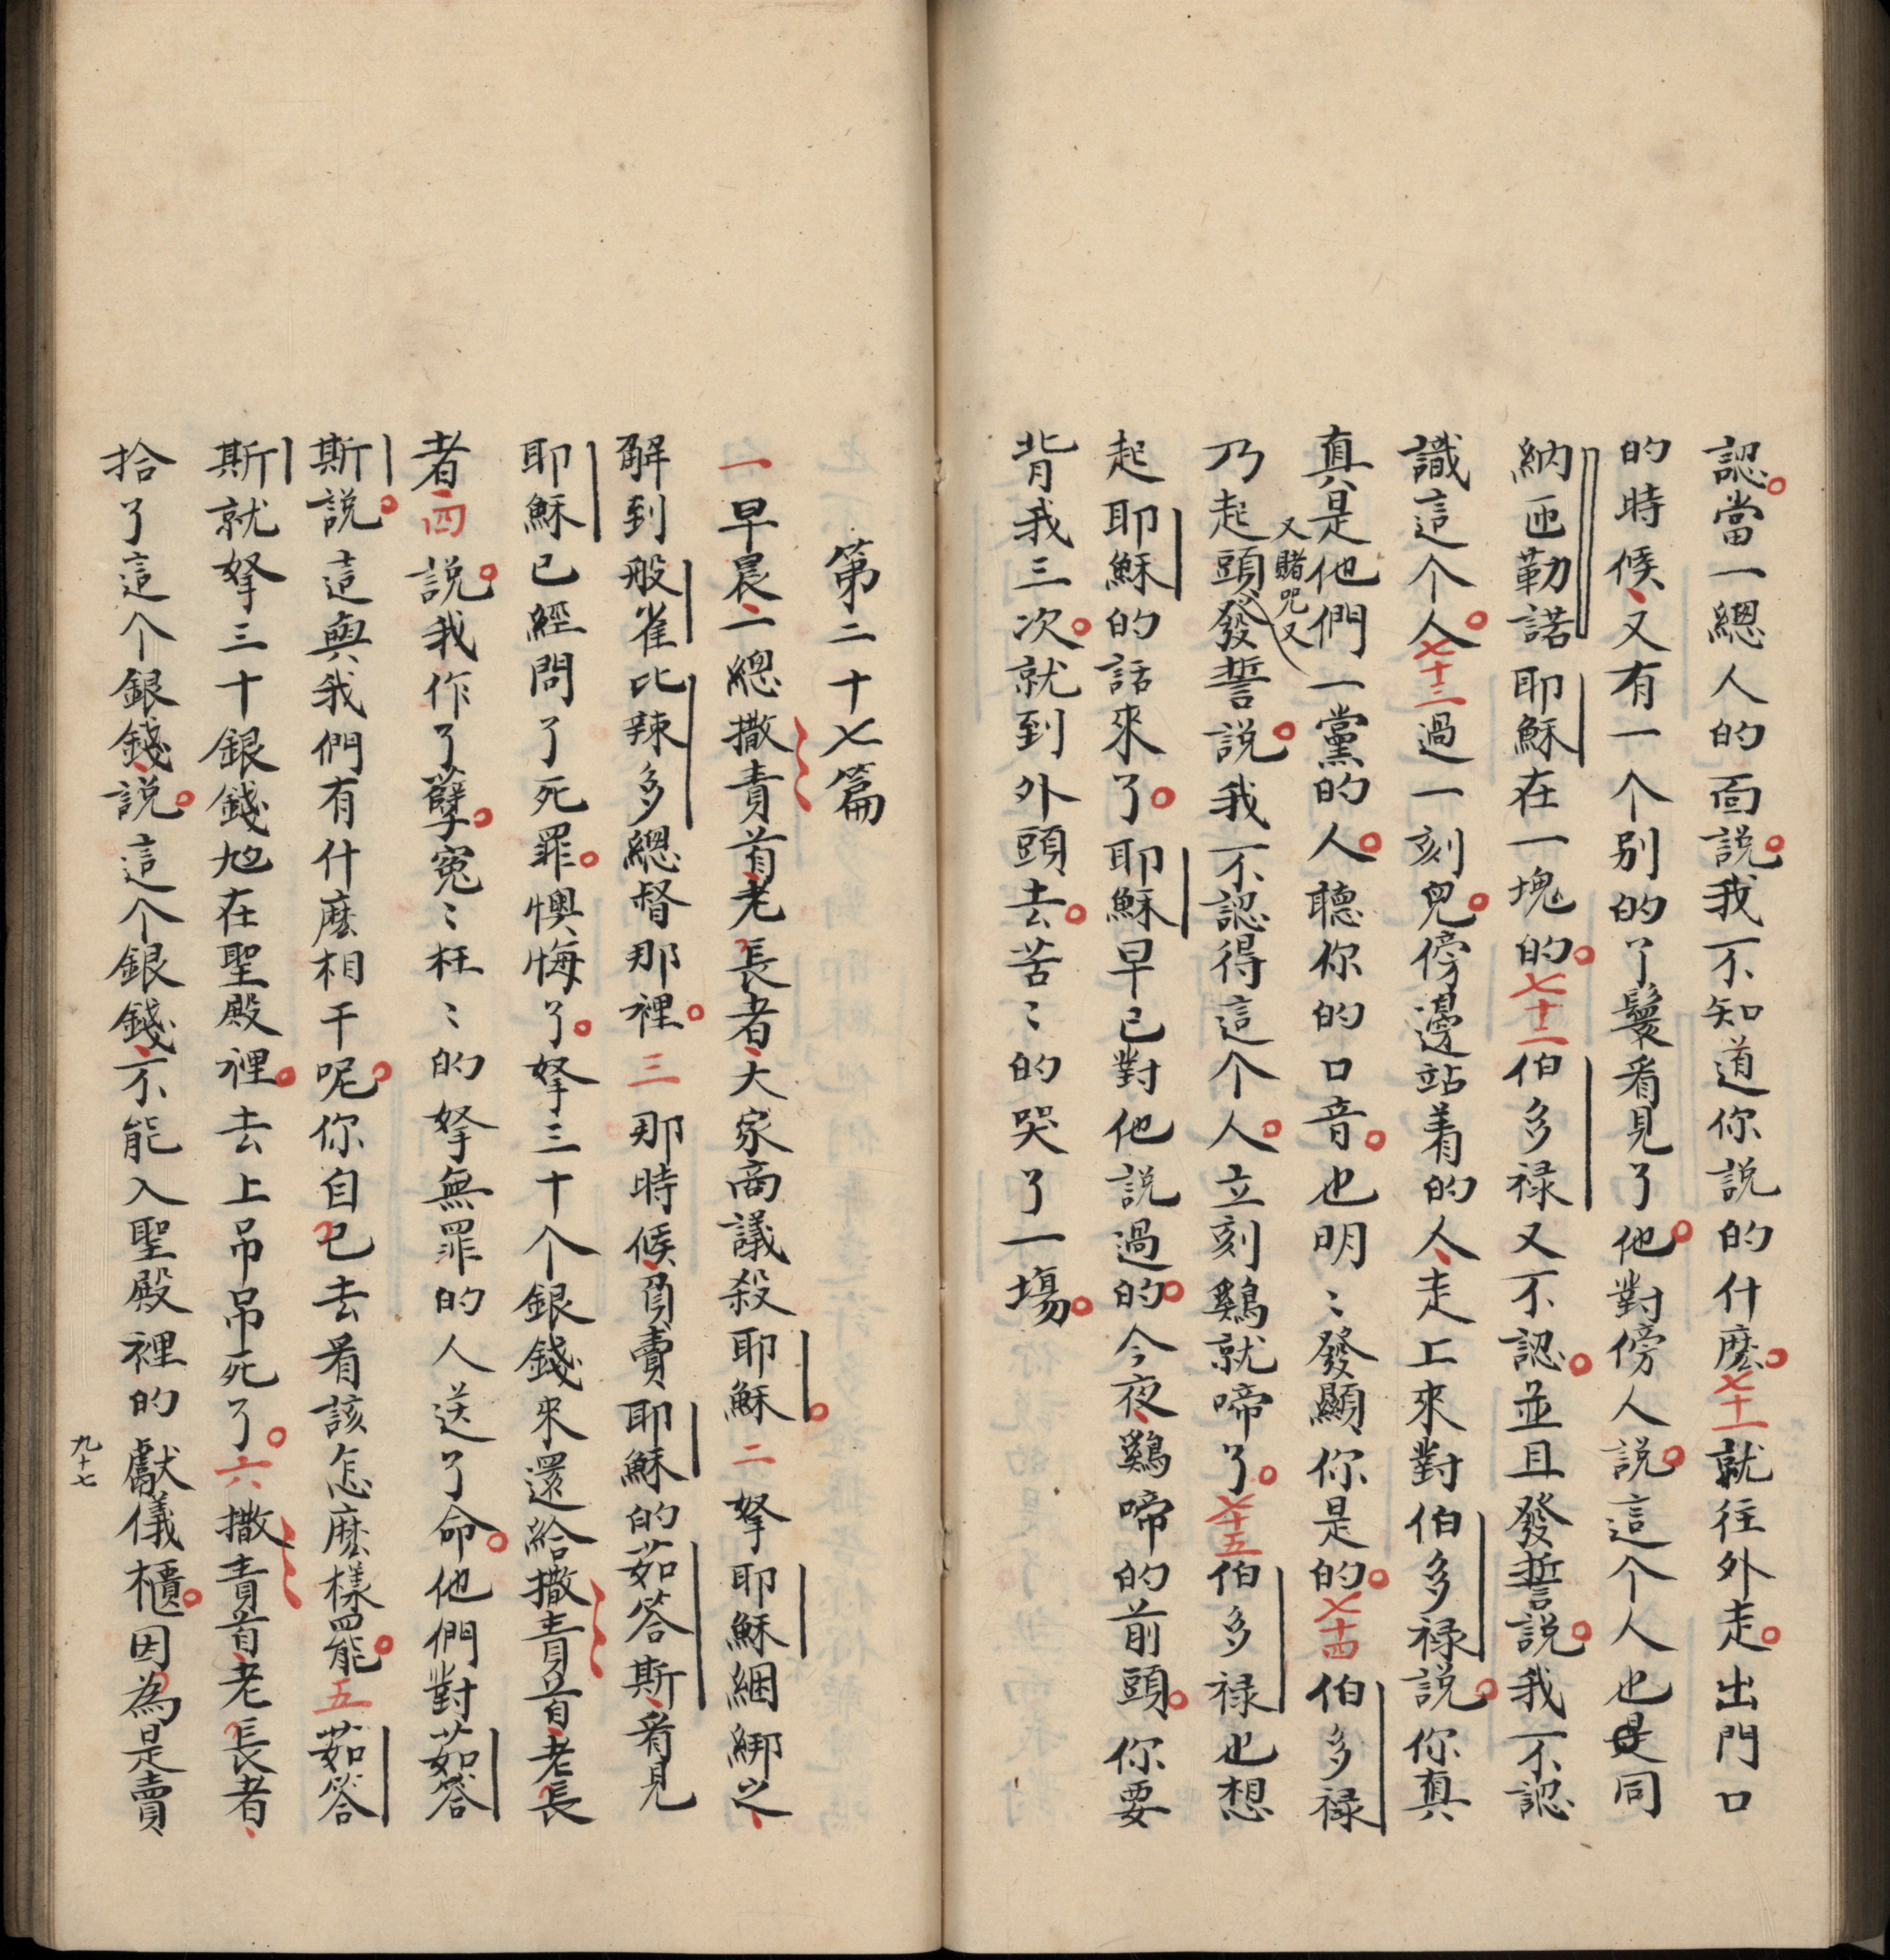 認。當一總人的面說。我不知道你說的什麽。七十一就往外走。走出門口
的時候、又有一个别的了鬟看見了他。對傍人說。這个人也是同
納匝勒諾耶穌在一塊的。七十二伯多禄又不認。並且發誓說。我不認
識這个人。七十三過一刻兒。傍邊站着的人、走上來對伯多禄說。你真
真是他們一黨的人。聽你的口音。也明〻發顯你是的。七十四伯多禄
又賭咒又
乃起頭發誓說。我不認得這个人。立刻鷄就啼了。七十五伯多禄也想
起耶穌的話來了。耶穌早已對他說過的。今夜、鷄啼的前頭。你要
背我三次。就到外頭去。苦〻的哭了一塲。
第二十七篇
一早晨、一總撒責首、老長者、大家商議殺耶穌。二拏耶穌綑綁上、
解到般雀比辣多總督那裡。三那時候、負賣耶穌的茹答斯、看見
耶穌已經問了死罪。懊悔了。拏三十个銀錢來還給撒責首、老長
者四說。我作了孽。寃〻枉〻的拏無罪的人送了命。他們對茹答
斯說。這與我們有什麽相干呢。你自己去看該怎麽樣罷。五茹答
斯就拏三十銀錢尥在聖殿裡。去上吊吊死了。六撒責首、老長者、
拾了這个銀錢、說。這个銀錢、不能入聖殿裡的獻儀櫃。因為是賣、
九十七